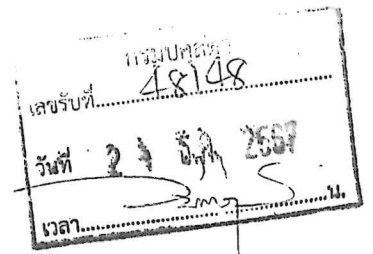 กรมปศุสัตว์
เลขรับที่ 48148
วันที่ 2 ธ.ค. 2567
เวลา น.